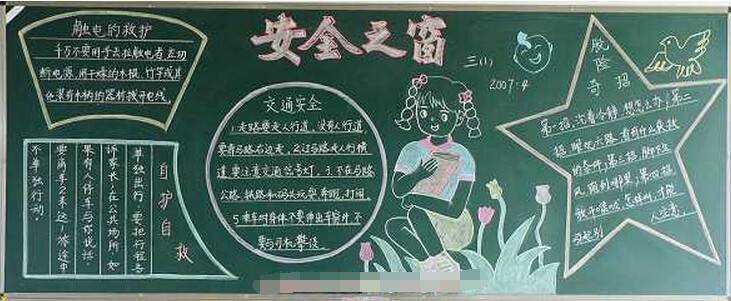 安全之窗
三(1)
2007.4
触电的救护
千万不要用手去拉触电者,立切
断电源,用干燥的木棍、竹竿或其
他装有木柄的器材拨开电线。
自护自救
单独出行,要把行程告
诉家长,在公共场所,如
果有人停车与你说话,
要离车2米远,旅途中
不单独行动。
交通安全
1.走路要走人行道,没有人行道,
要靠马路右边走,2.过马路走人行横
道,要注意交通信号灯,3.不在马路
公路、铁路和码头玩耍、奔跑、打闹
5.乘车时身体不要伸出车窗外,不
要与司机攀谈
脱险
奇招
第一招,沈着冷静,想怎么办;第二
招,眼观六路,看有什么获救
的条件;第三招,脚下生
风,跑到哪里;第四招,
放开喉咙,怎样叫,才能
人注意